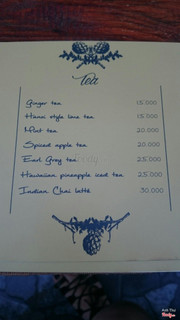 Tea
Ginger tea 15.000
Hanoi style lime tea 15.000
Mint tea 20.000
Spiced apple tea 20.000
Earl Grey tea 25.000
Hawaiian pineapple iced tea 25.000
Indian Chai latté 30.000